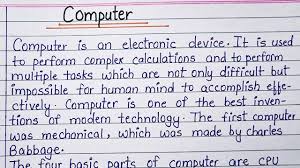 Computer
Computer is an electronic device. It is used
to perform complex calculations and to perform
multiple tasks which are not only difficult but
impossible for human mind to accomplish effe-
ctively. Computer is one of the best inven-
tions of modern technology. The first computer
was mechanical, which was made by Charles
Babbage.
The four basic parts of computer are CPU